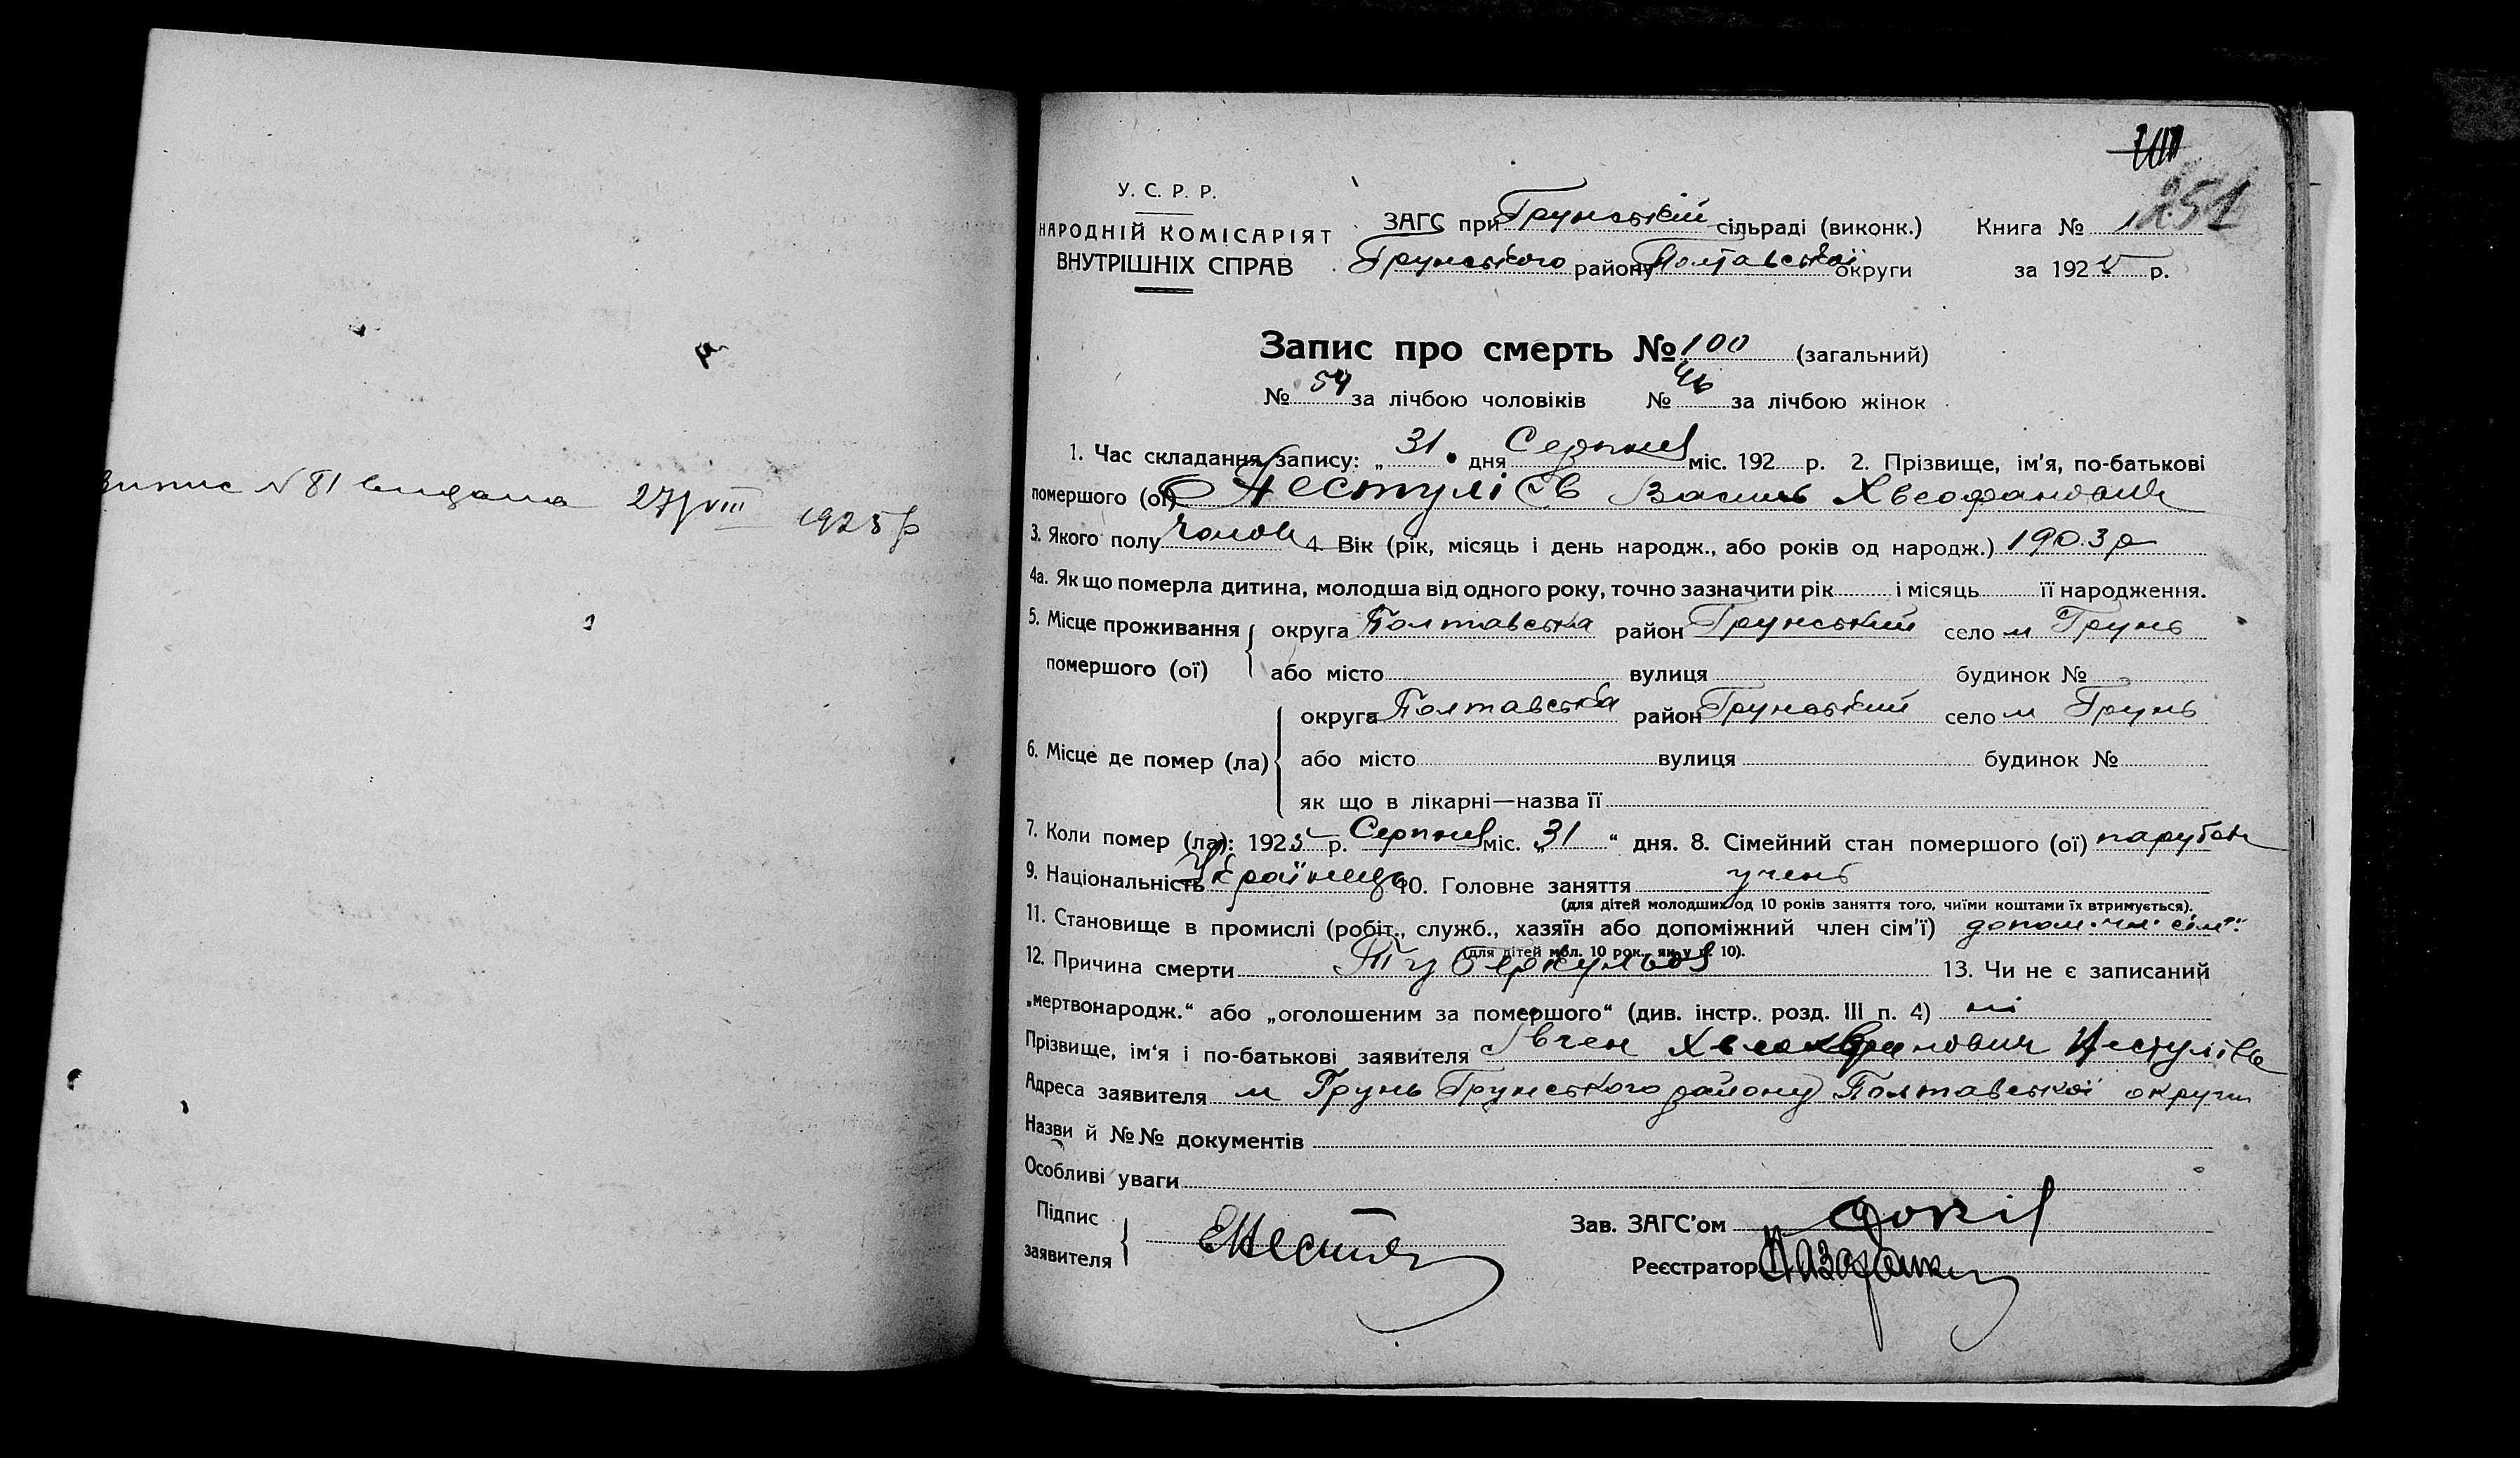 Випис № 81 видана 27/VIII 1925 р
251
У. С. Р. Р.
НАРОДНІЙ КОМІСАРІЯТ
ВНУТРІШНІХ СПРАВ
ЗАГС при Грунській сільраді (виконк.)
Грунського району Полтавської округи
Книга № 1
за 1925 р.
Запис про смерть № 100 (загальний)
№ 54 за лічбою чоловіків № 46 за лічбою жінок
1. Час складання запису: „ 31 " дня Серпня міс. 192 р. 2. Прізвище, ім'я, по-батькові
помершого (ої) Нестуліїв Василь Хвеофанович
3. Якого полу чолов 4. Вік (рік, місяць і день народж., або років од народж.) 1903 р
4а. Як що померла дитина, молодша від одного року, точно зазначити рік і місяць її народження.
5. Місце проживання помершого (ої) округа Полтавська район Грунський село м Грунь
або місто вулиця будинок №
6. Місце де помер (ла) округа Полтавська район Грунський село м Грунь
або місто вулиця будинок №
як що в лікарні—назва її
7. Коли помер (ла): 1925 р. Серпня міс. „ 31 " дня. 8. Сімейний стан помершого (ої) парубок
9. Національність Українець 10. Головне заняття учень
(для дітей молодших од 10 років заняття того, чиїми коштами їх втримується).
11. Становище в промислі (робіт., служб., хазяїн або допоміжний член сім'ї) допом. чл. сім.
(для дітей мол. 10 рок., як у п. 10).
12. Причина смерти Туберкульоз 13. Чи не є записаний
„мертвонародж." або „оголошеним за помершого" (див. інстр. розд. III п. 4) ні
Прізвище, ім'я і по-батькові заявителя Євген Хвеофанович
Адреса заявителя м Грунь Грунського району Полтавської округи
Назви й №№ документів
Особливі уваги
Підпис заявителя
Зав. ЗАГС'ом
Реєстратор